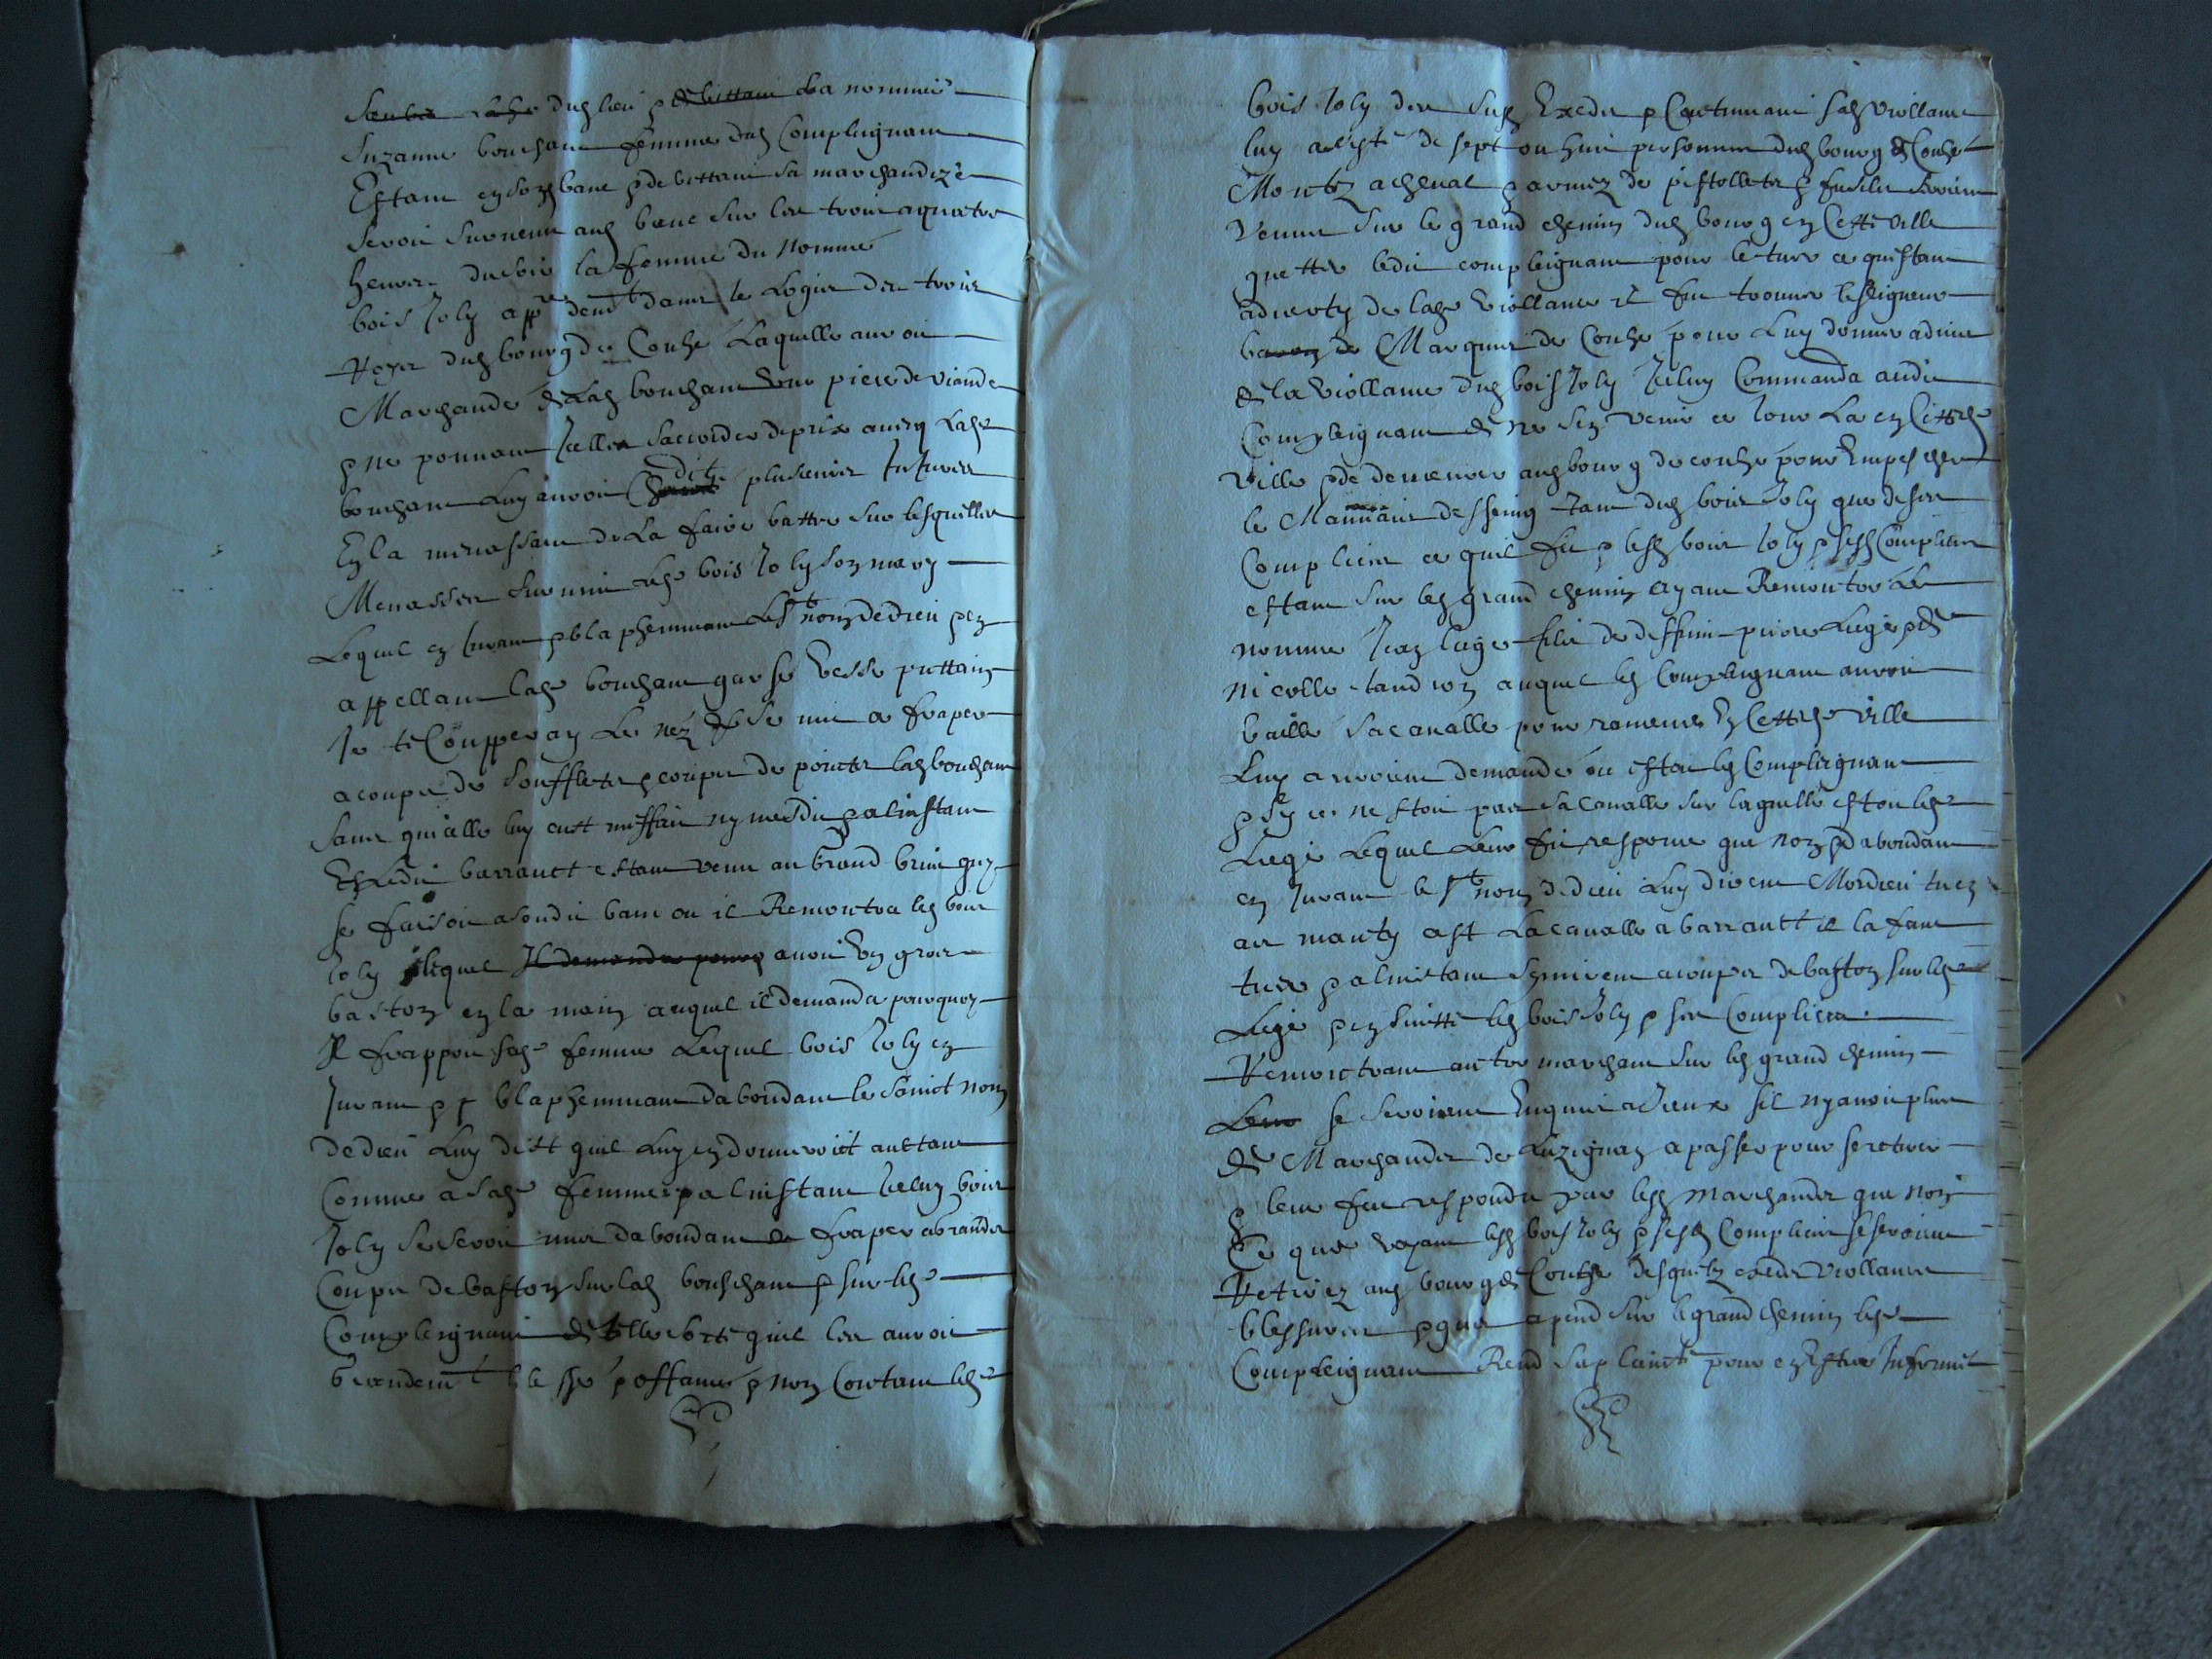 dud lieu & la nommée
Suzanne bouchant femme dud Complaignant
Estant en son banc & debittant sa marchandize
seroit survenu aud banc sur les trois a quatre
heures du soir la femme du nommé
bois Joly dans le Logis des trois
Roys dud bourg de Couhé Laquelle auroit
Marchandé de lad bouchant une piece de viande
& ne pouvant Icelles saccorder de prix avecq lade
bouchant Luy auroit dit plusieurs Injures
En la menassant de La faire battre sur lesquelles
Menasses survint led bois Joly son mary
Lequel en Jurant & blaphemmant le St nom de dieu & en
appellant lade bouchant garse vesse puttain
Je te Coupperay Le nez & se mit a fraper
a coups de souffletz & coups de poincts lad bouchant
sans quelle luy eust meffait ny mesdit & a linstant
Ledit barrautt estant venu au Grand bruit quy
se faisoit a sondit banc ou il Remontra led bois
Joly lequel Il demanda pourq avoit un gros
baston en la main auquel il demanda pourquoy
Il frappoit sade femme Lequel bois Joly en
Jurant & blaphemmant dabondant le sainct nom
de dieu Luy dist quil Luy en donneroit auttant
Comme a sade femme & a linstant Iceluy bois
Joly se seroit mis dabondant a fraper a grandz
Coups de baston sur lad bouchant & sur led
Complaignant de telle sorte quil les auroit
Grandemt blessé & offancé & non Contant led
bois Joly des susd Exces & Continuant sesd viollance
luy assisté de sept ou huit personnes dud bourg de Couhé
Montez a cheval & armez de pistolletz & fusils seroient
Venus sur le grand chemin dud bourg en Cette ville
guetter ledit complaignant pour le tuer ce questant
adverty de lade viollance il fut trouver le seigneur
Marquis de Couhé pour Luy donner advis
de la viollance dud bois Joly Iceluy Commanda audit
Complaignant de ne sen venir ce Jour La en Cette de
ville & de demeurer aud bourg de couhé pour Empescher
le Mauvais desseing tant dud bois Joly que de ses
Complices ce quil fit & led bois Joly & sesd Complices
estant sur led grand chemin ayant Remontré Le
nommé Jean Liege fils de deffunt pierre Liege & de
nicolle auquel led Complaignant auroit
baillé sa cavalle pour ramener En Cette de ville
Luy auroient demandé ou estoit led Complaignant
& sy ce nestoit pas sa Cavalle sur laquelle estoit led
Liege Lequel Leur fit response que non & dabondant
en Jurant le St nom de dieu Luy dirent Mordieu tu en
as manty cest La cavalle a barrautt il la faut
tuer & a linstant se mirent a coups de baston sur led
Liege & en suitte led bois Joly & ses Complices
Remontrant autre marchant sur led grand chemin
se seroient Enquis a Iceux sil ny avoit plus
de Marchandz de Luzignan a passer pour se retirer
& leur fut respondu par lesd marchandz que non
Ce que voyant led bois Joly & sesd Complices se seroient
Retirez aud bourg de Couhé desquelz exces viollance
blessures & guet apend sur le grand chemin led
Complaignant Rend sa plaincte pour en Estre Informé